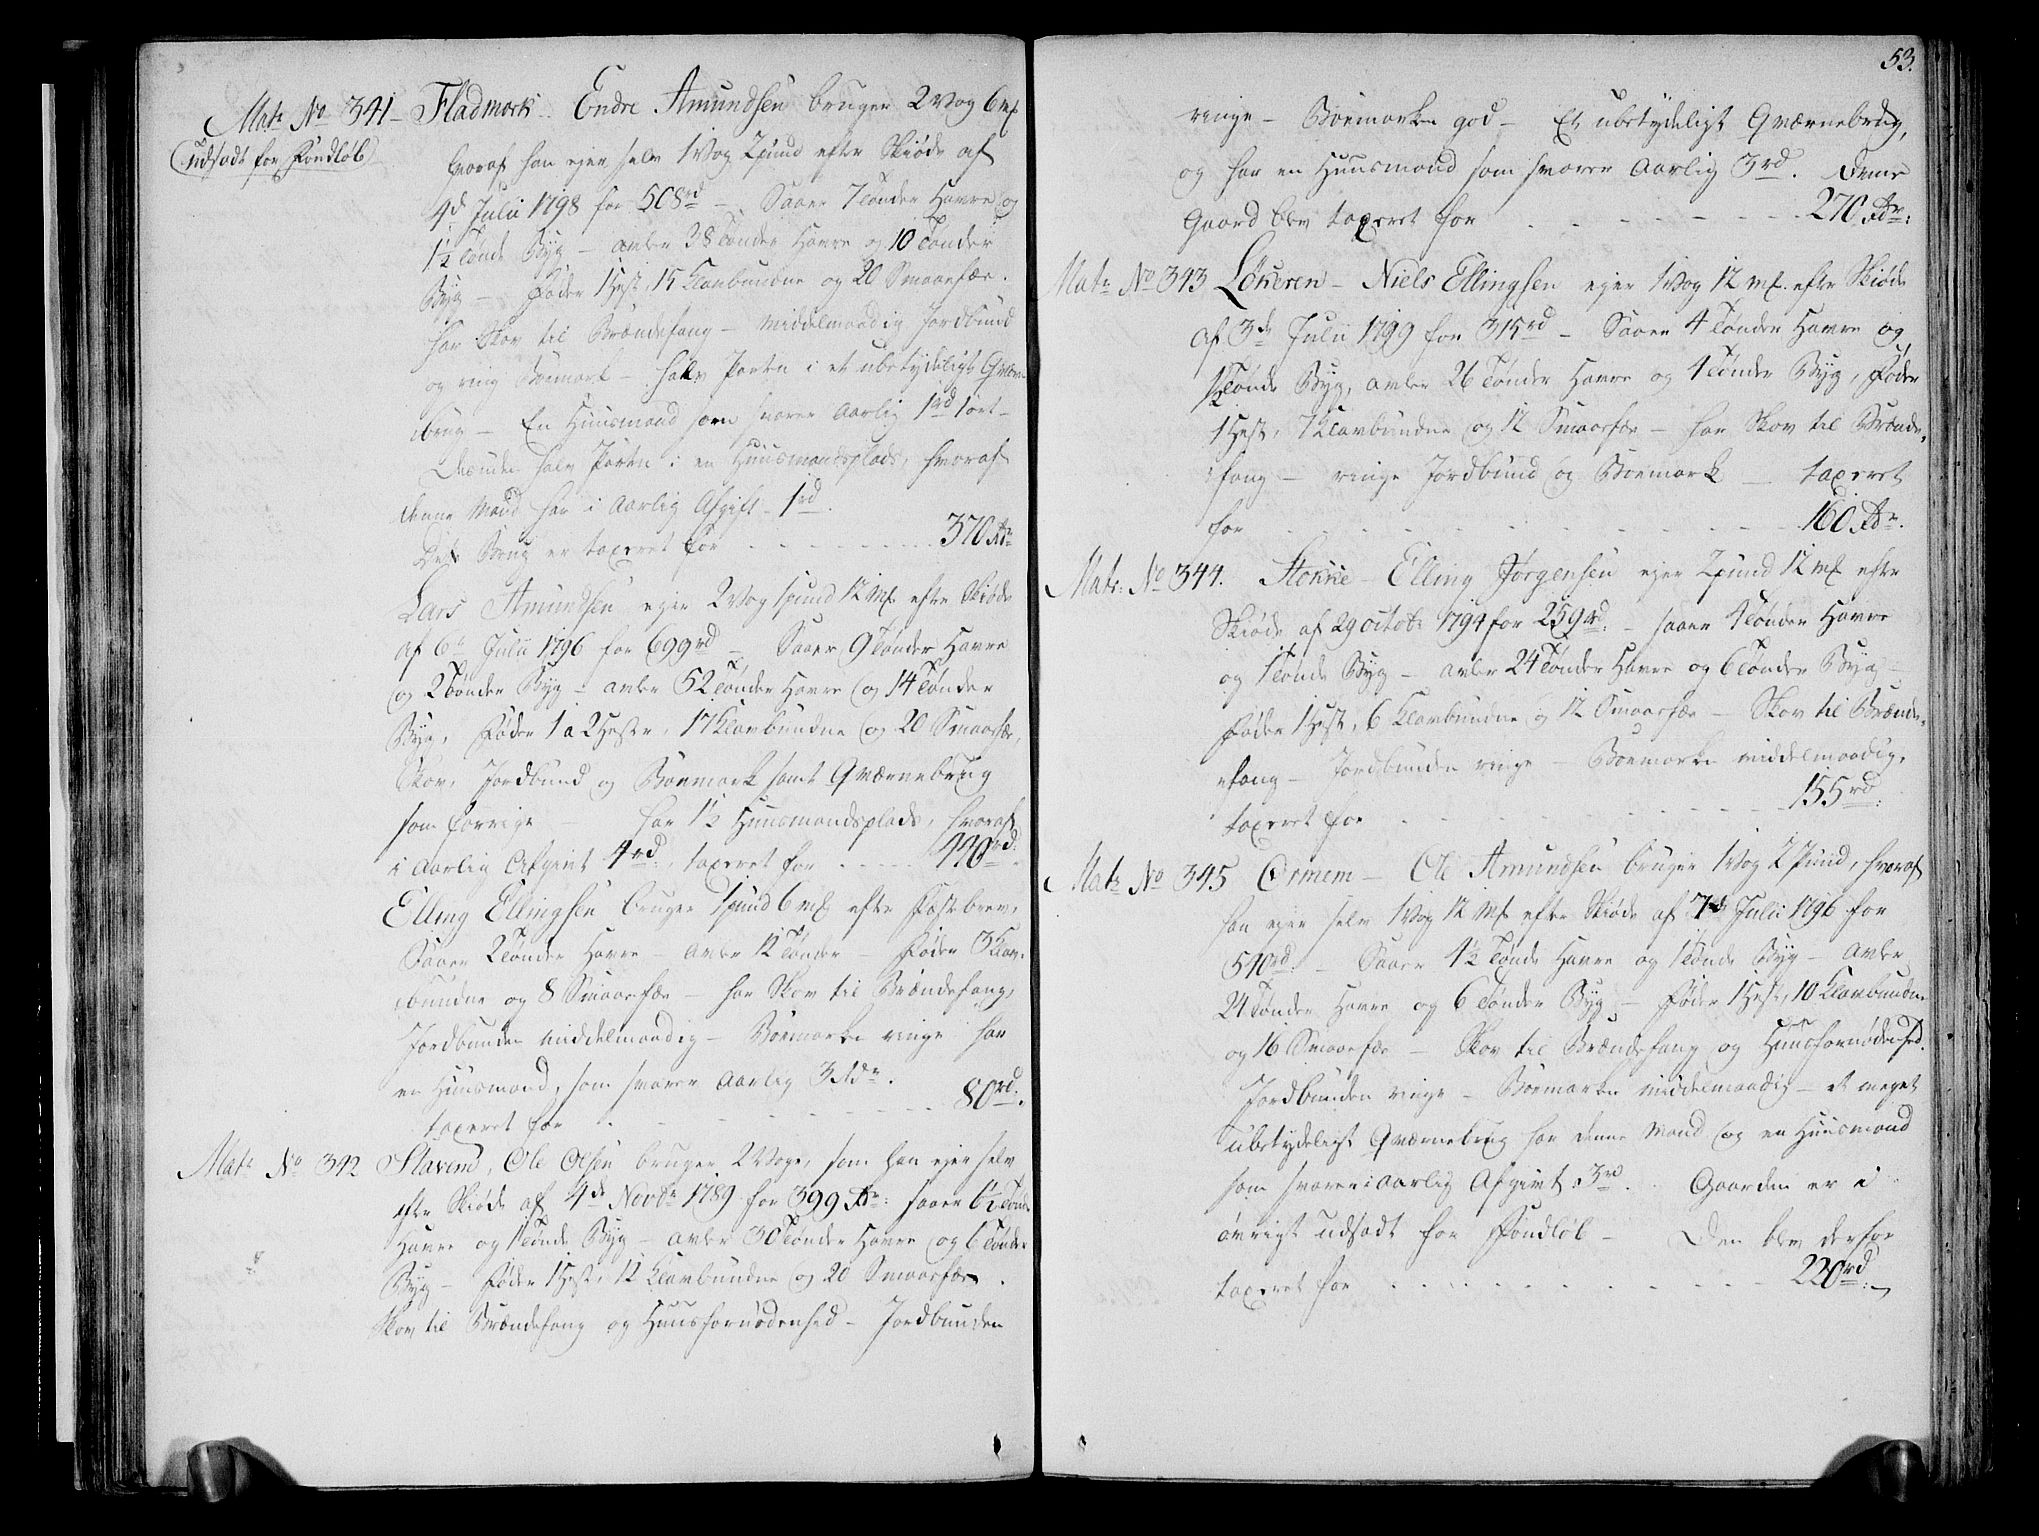 Mat: No 341 – Fladmark. Endre Amundsen bruger 2 Vog 6 mf
(udsadt for Fondløb)
hvoraf han ejer selv 1 Vog 2 pund efter Skiøde af
4d Julii 1798 for 508 rd – Saaer 7 Tønder Havre og
1½ Tønde Byg – avler 38 Tønder Havre og 10 Tønder
Byg – Føder 1 Hest, 15 Klavbundne og 20 Smaaefæe.
har Skov til Brændefang – middelmaadig Jordbund
og ring Boemark – halv Parten i et ubetydeligt Qværn-
brug – En Huusmand som svarer aarlig 1 rd 1 ort –
halv Parten i en Huusmandsplads, hvoraf
denne Mand har i aarlig Afgift 1 rd.
Dets Brug er taxeret for - - - - - - - - 370 Rdr
Lars Amundsen ejer 2 Vog 1 pund 12 Mf efter Skiøde
af 6te Julii 1796 for 699 rd – Saaer 9 Tønder Havre
og 2 Tønder Byg – avler 52 Tønder Havre og 14 Tønder
Byg, Føder 1 a 2 Heste, 17 Klavbundne og 20 Smaaefæe,
Skov, Jordbund og Boemark samt Qværnebrug
som forrige – har 1½ Huusmandsplads, hvoraf
i aarlig Afgivt 4 rd, taxeret for - - - - 440 rd:
Elling Ellingsen bruger 1 pund 6 mf efter Fæstebrev,
Saaer 2 Tønder Havre – avler 12 Tønder – Føder 3 Klav-
bundne og 8 Smaaefæe – har Skov til Brændefang,
Jordbunden middelmaadig – Boemarken ringe har
en Huusmand, som svarer aarlig 3 Rdr.
taxeret for - - - - - - - - 80 rd:
Mat: No 342 Slavend, Ole Olsen bruger 2 Voge, som han ejer selv
efter Skiøde af 4de Novbr 1789 for 399 Rdr: saaer 6½ Tønde
Havre og 1 Tønde Byg – avler 30 Tønder Havre og 6 Tønder
Byg – Føder 1 Hest, 12 Klavbundne og 20 Smaaefæe.
Skov til Brændefang og Huusfornødenhed – Jordbunden
53.
ringe – Boemarken god – Et ubetydeligt Qværnebrug,
og har en Huusmand som svarer aarlig 3 rd. denne
Gaard blev taxeret for - - - - - - - 270 Rdr:
Mat: No 343 Løkeren – Niels Ellingsen ejer 1 Vog 12 mf. efter Skiøde
af 3de Julii 1799 for 315 rd – Saaer 4 Tønder Havre og
½ Tønde Byg, avler 26 Tønder Havre og 4 Tønder Byg, Føder
1 Hest, 7 Klavbundne og 12 Smaaefæe – har Skov til Brænde-
fang – ringe Jordbund og Boemark – taxeret
for - - - - - - - - 160 Rdr.
Mat: No 344. Stokke – Elling Jørgensen ejer 2 pund 12 mf efter
Skiøde af 29 octobr 1794 for 259 rd: – saaer 4 Tønder Havre
og 1 Tønde Byg – avler 24 Tønder Havre og 6 Tønder Byg –
Føder 1 Hest, 6 Klavbundne og 12 Smaaefæe – Skov til Brænde-
fang – Jordbunden ringe – Boemarken middelmaadig,
taxeret for - - - - - - - - 155 rd:
Mat: No 345 Ormem – Ole Amundsen bruger 1 Vog 2 Pund, hvoraf
han ejer selv 1 Vog 12 Mf efter Skiøde af 7de Julii 1796 for
540 rd: – Saaer 4½ Tønde Havre og 1 Tønde Byg – avler
24 Tønder Havre og 6 Tønder Byg – Føder 1 Hest, 10 Klavbundne
og 16 Smaaefæe – Skov til Brændefang og Huusfornødenhed.
Jordbunden ringe – Boemarken middelmaadig – et meget
ubetydeligt Qværnebrug har denne Mand og en Huusmand
som svarer i aarlig Afgivt 3 rd. Gaarden er i
øvrigt udsadt for Fondløb – Den blev derfor
taxeret for - - - - - - - - 220 rd: